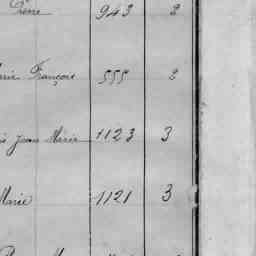 Pierre 943 2
Marie François 555 2
Jean Marie 1123 3
Marie 1121 3